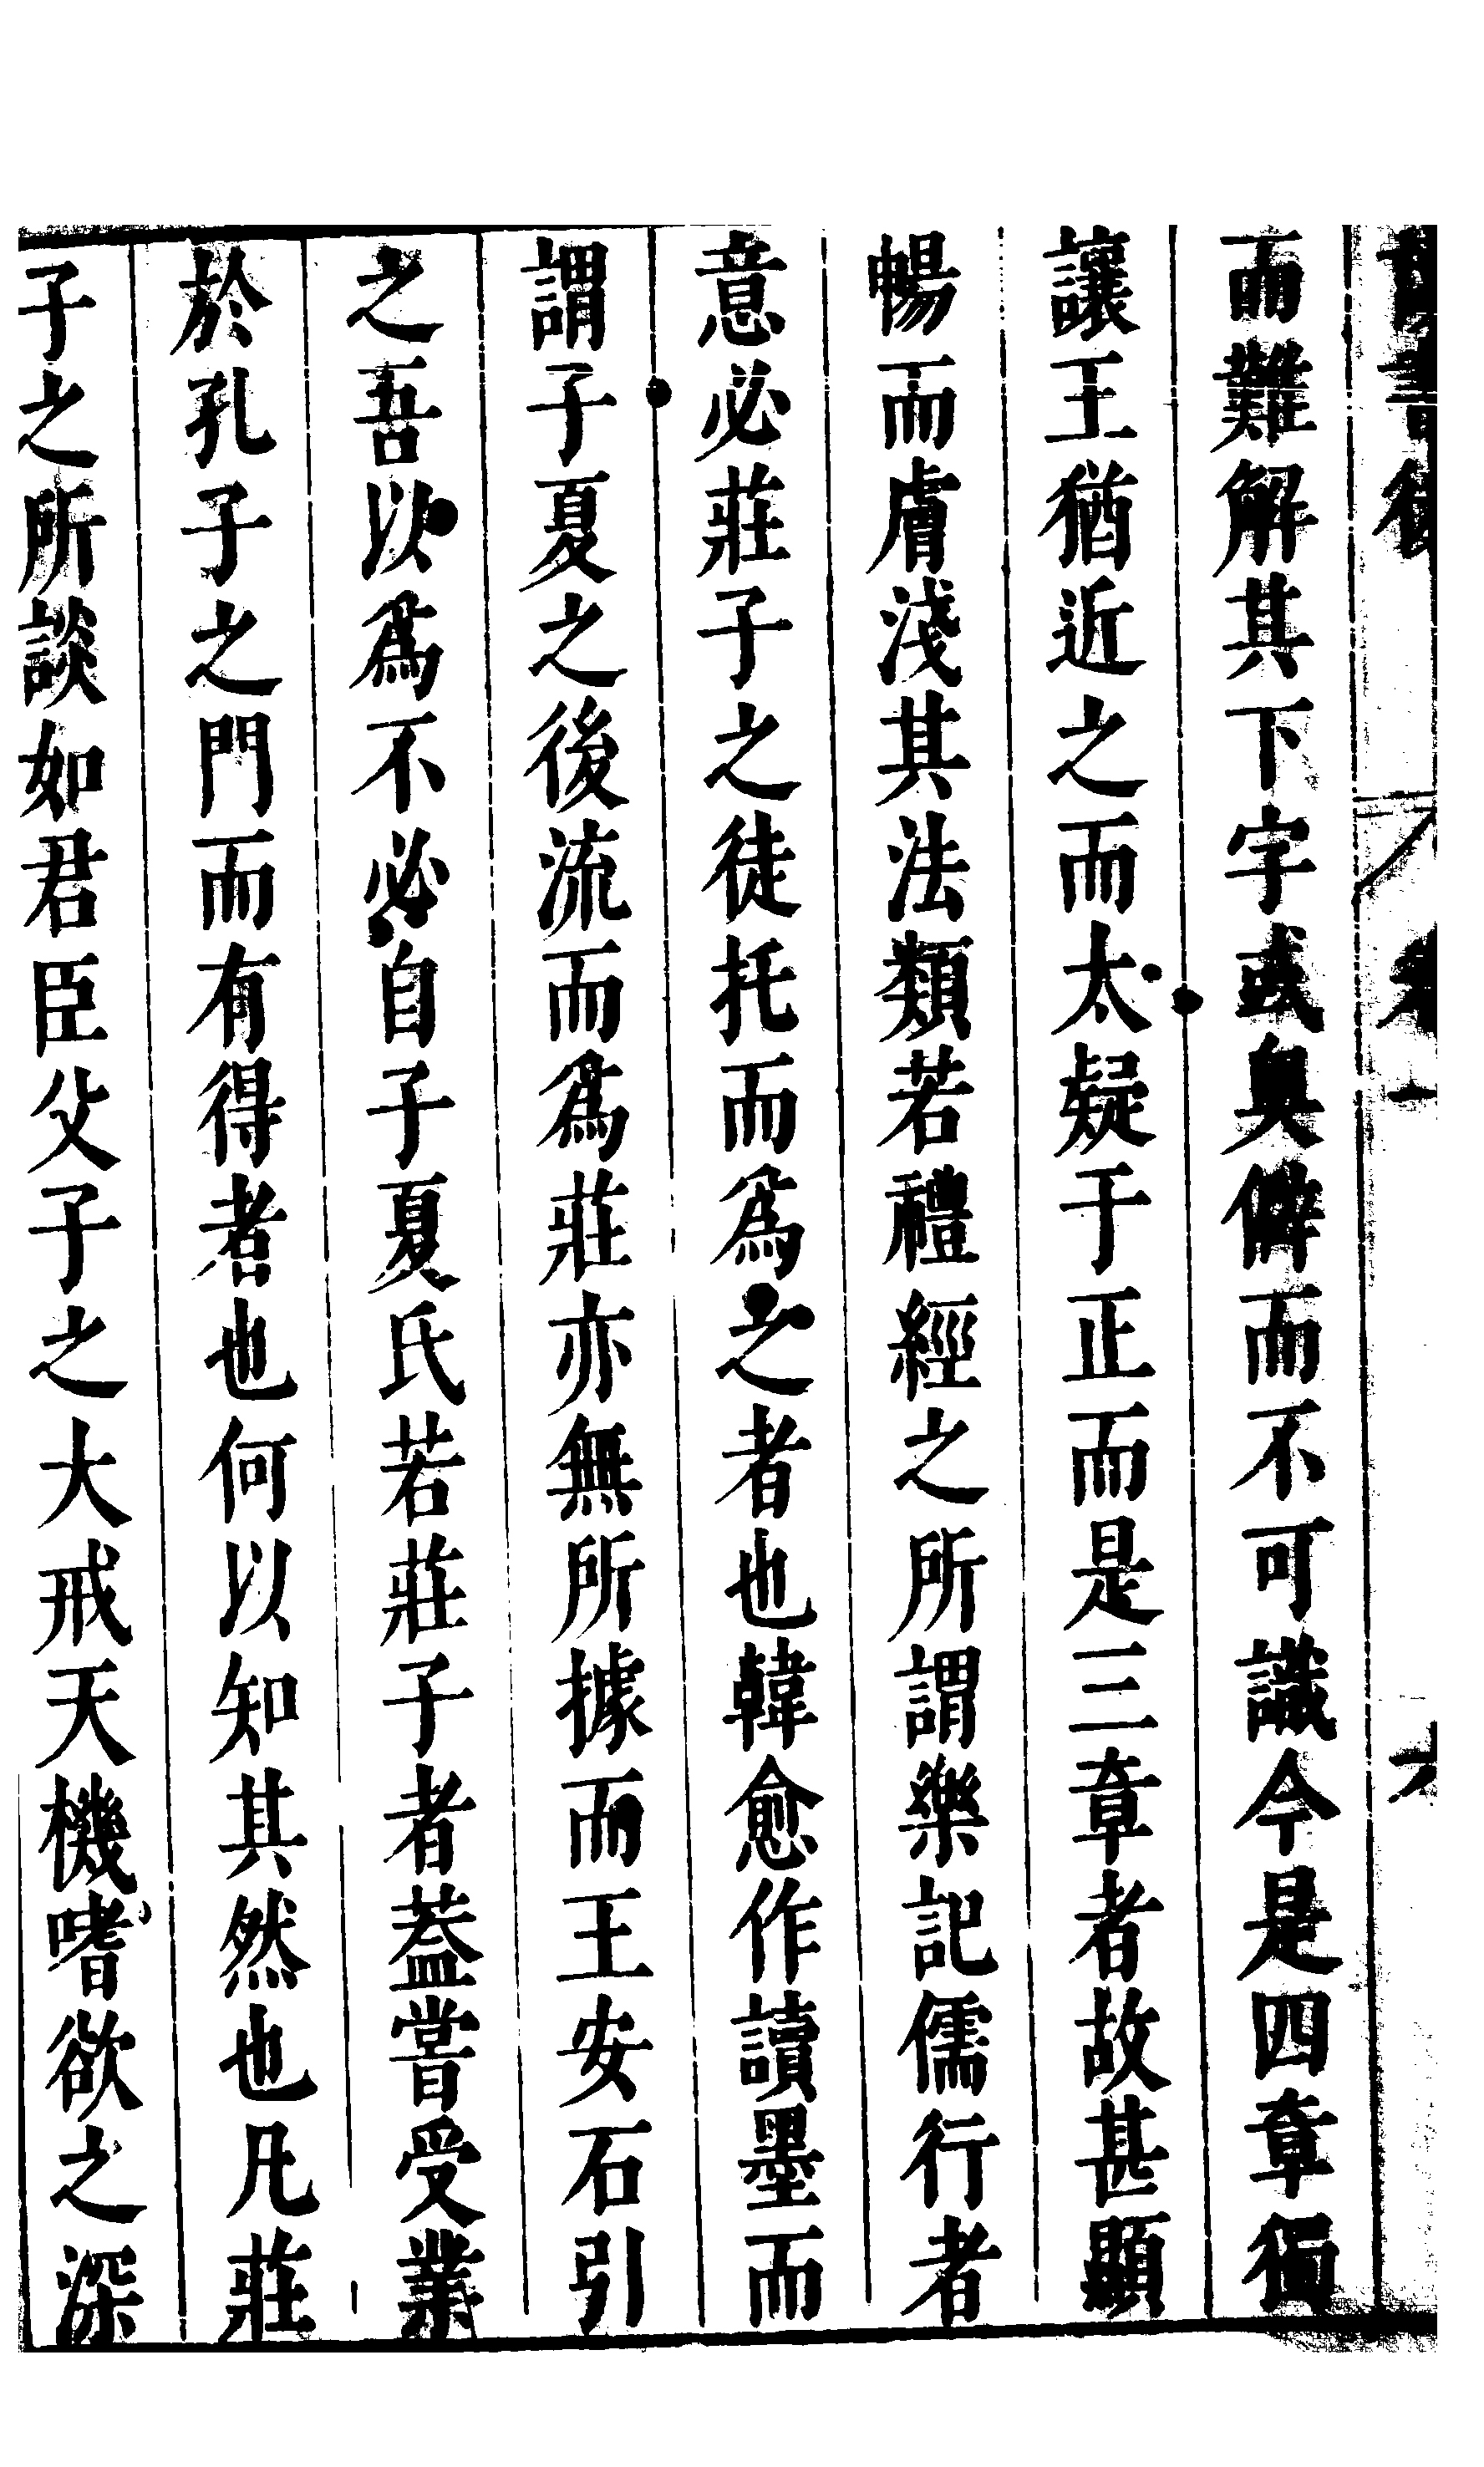 而難解其下字或奥僻而不可識今是四章獨
讓王猶近之而太疑于正而是三章者故甚顯
暢而膚淺其法類若禮經之所謂樂記儒行者
意必莊子之徒托而爲之者也韓愈作讀墨而
謂子夏之後流而爲莊亦無所據而王安石引
之吾以爲不必自子夏氏若莊子者葢嘗受業
於孔子之門而有得者也何以知其然也凡莊
子之所談如君臣父子之大戒天機嗜欲之深